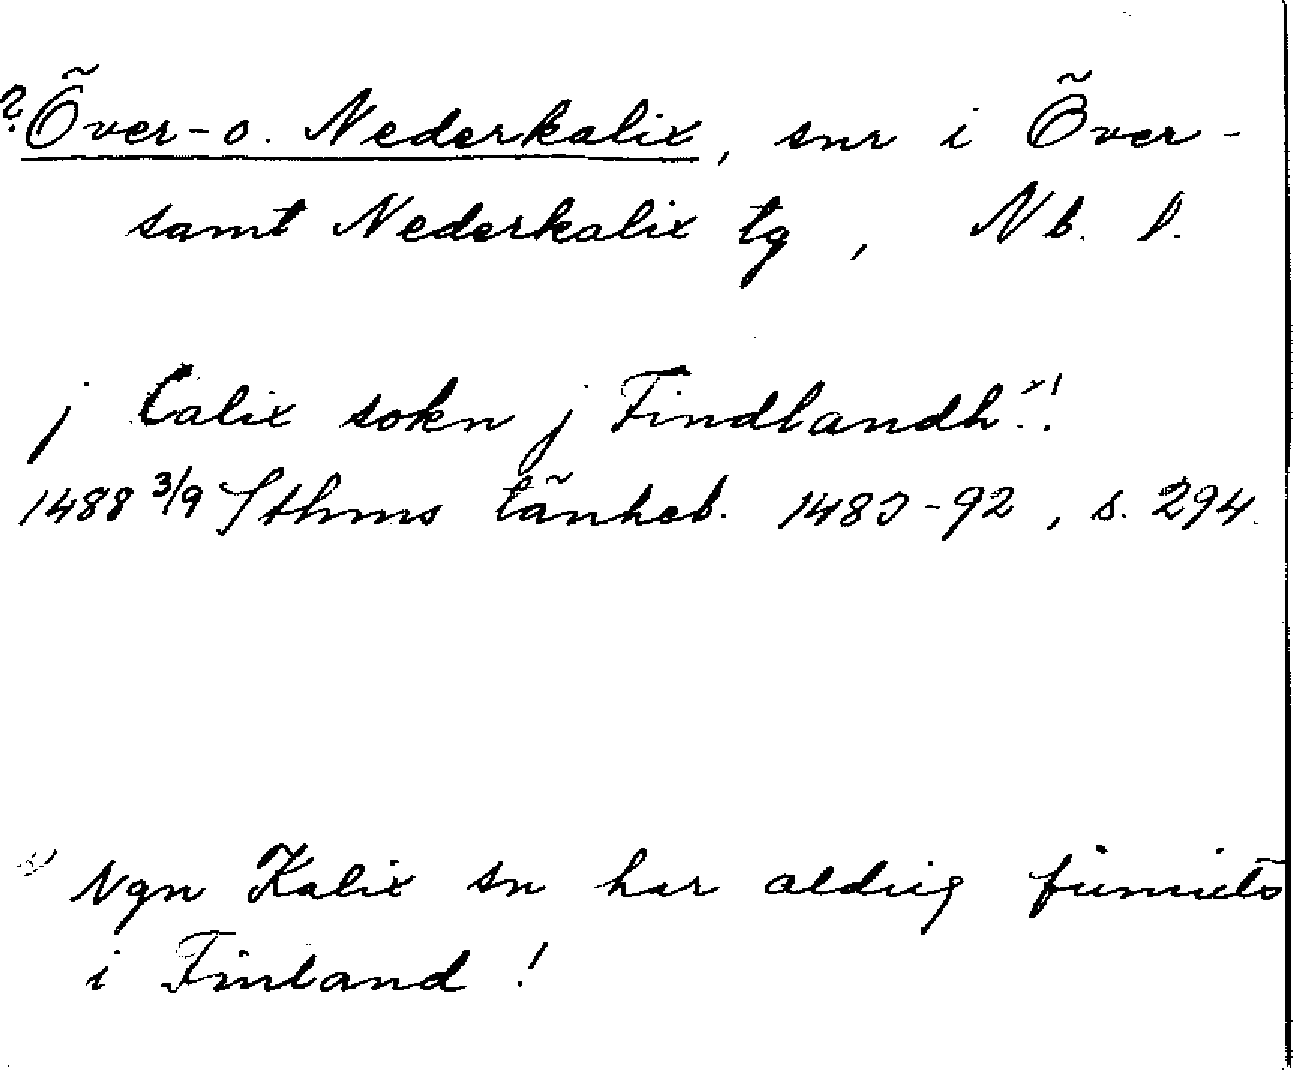 ? Över- o. Nederkalix, snr i Över-
samt Nederkalix tg, Nb. l.
j Calix sokn j Findlandh x)!
1488 3/9 Sthms tänkeb. 1483-92, s. 294.
x) Ngn Kalix sn har aldrig funnits
i Finland!